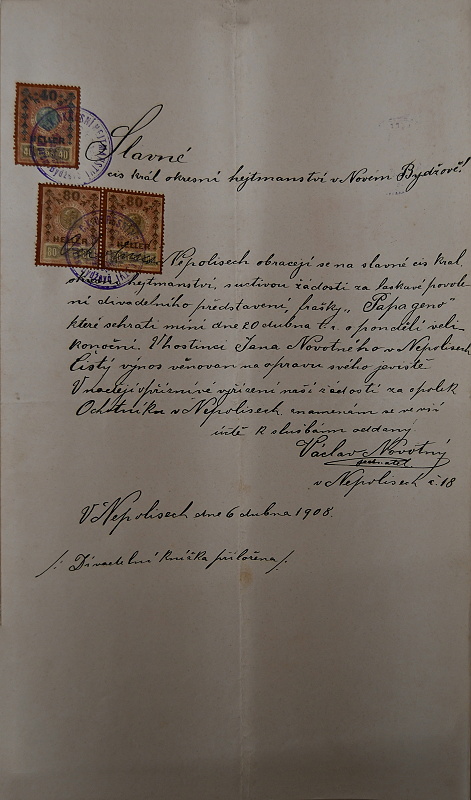 40
HELLER
40 40
Slavné
cis král okresní hejtmanství v Novém Bydžově!
80 80
HELLER HELLER
80
V Nepolisech obracejí se na slavné cis král
hejtmanství, s uctivou žádostí za laskavé povole
ní divadelního představení, frašky „Papageno"
které sehráti míní dne 20 dubna t.r. o pondělí veli
konoční. V hostinci Jana Novotného v Nepolisech
Čistý výnos věnován na opravu svého jeviště
V naději v příznivé vyřízení naší žádosti za spolek
Ochotníků v Nepolisech znamenám se ve vší
úctě k službám oddaný
Václav Novotný
jednatel
v Nepolisech č. 18
V Nepolisech dne 6 dubna 1908.
/: Divadelní knížka přiložena :/